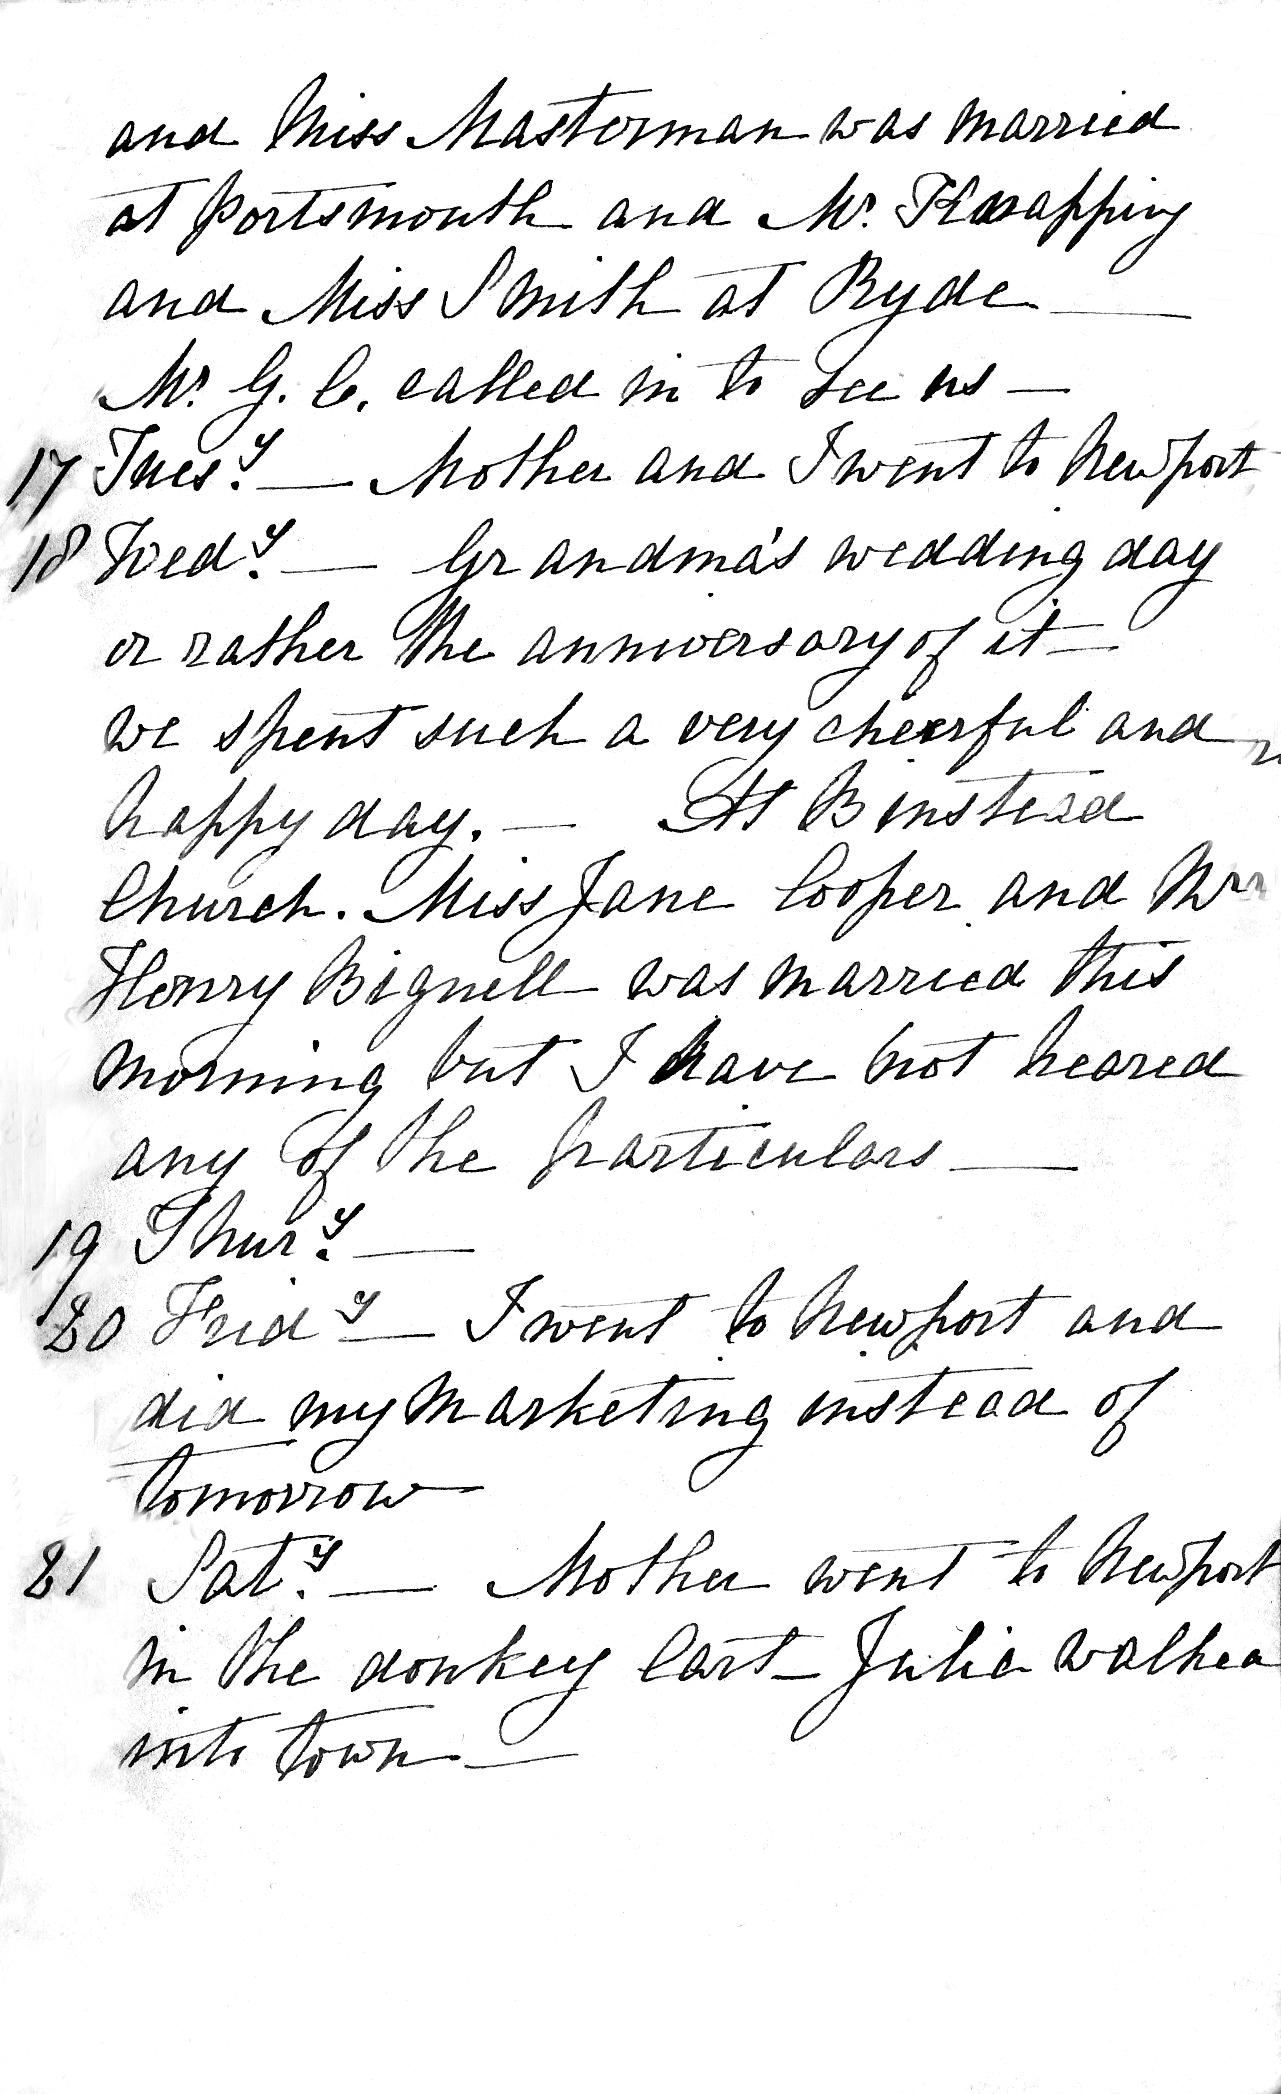 and Miss Masterman was married
at Portsmouth and Mr. Knapping
and Miss Smith at Ryde —
Mr. G. C. called in to see us —
17 Tues.y — Mother and I went to Newport
18 Wed.y — Grandma's wedding day
or rather the anniversary of it —
we spent such a very cheerful and
happy day. — At Binstead
Church. Miss Jane Cooper and Mr
Henry Bignell was married this
morning but I have not heared
any of the particulars —
19 Thur.y —
20 Frid.y — I went to Newport and
did my marketing instead of
tomorrow
21 Sat.y — Mother went to Newport
in the donkey Cart — Julia walked
into town —